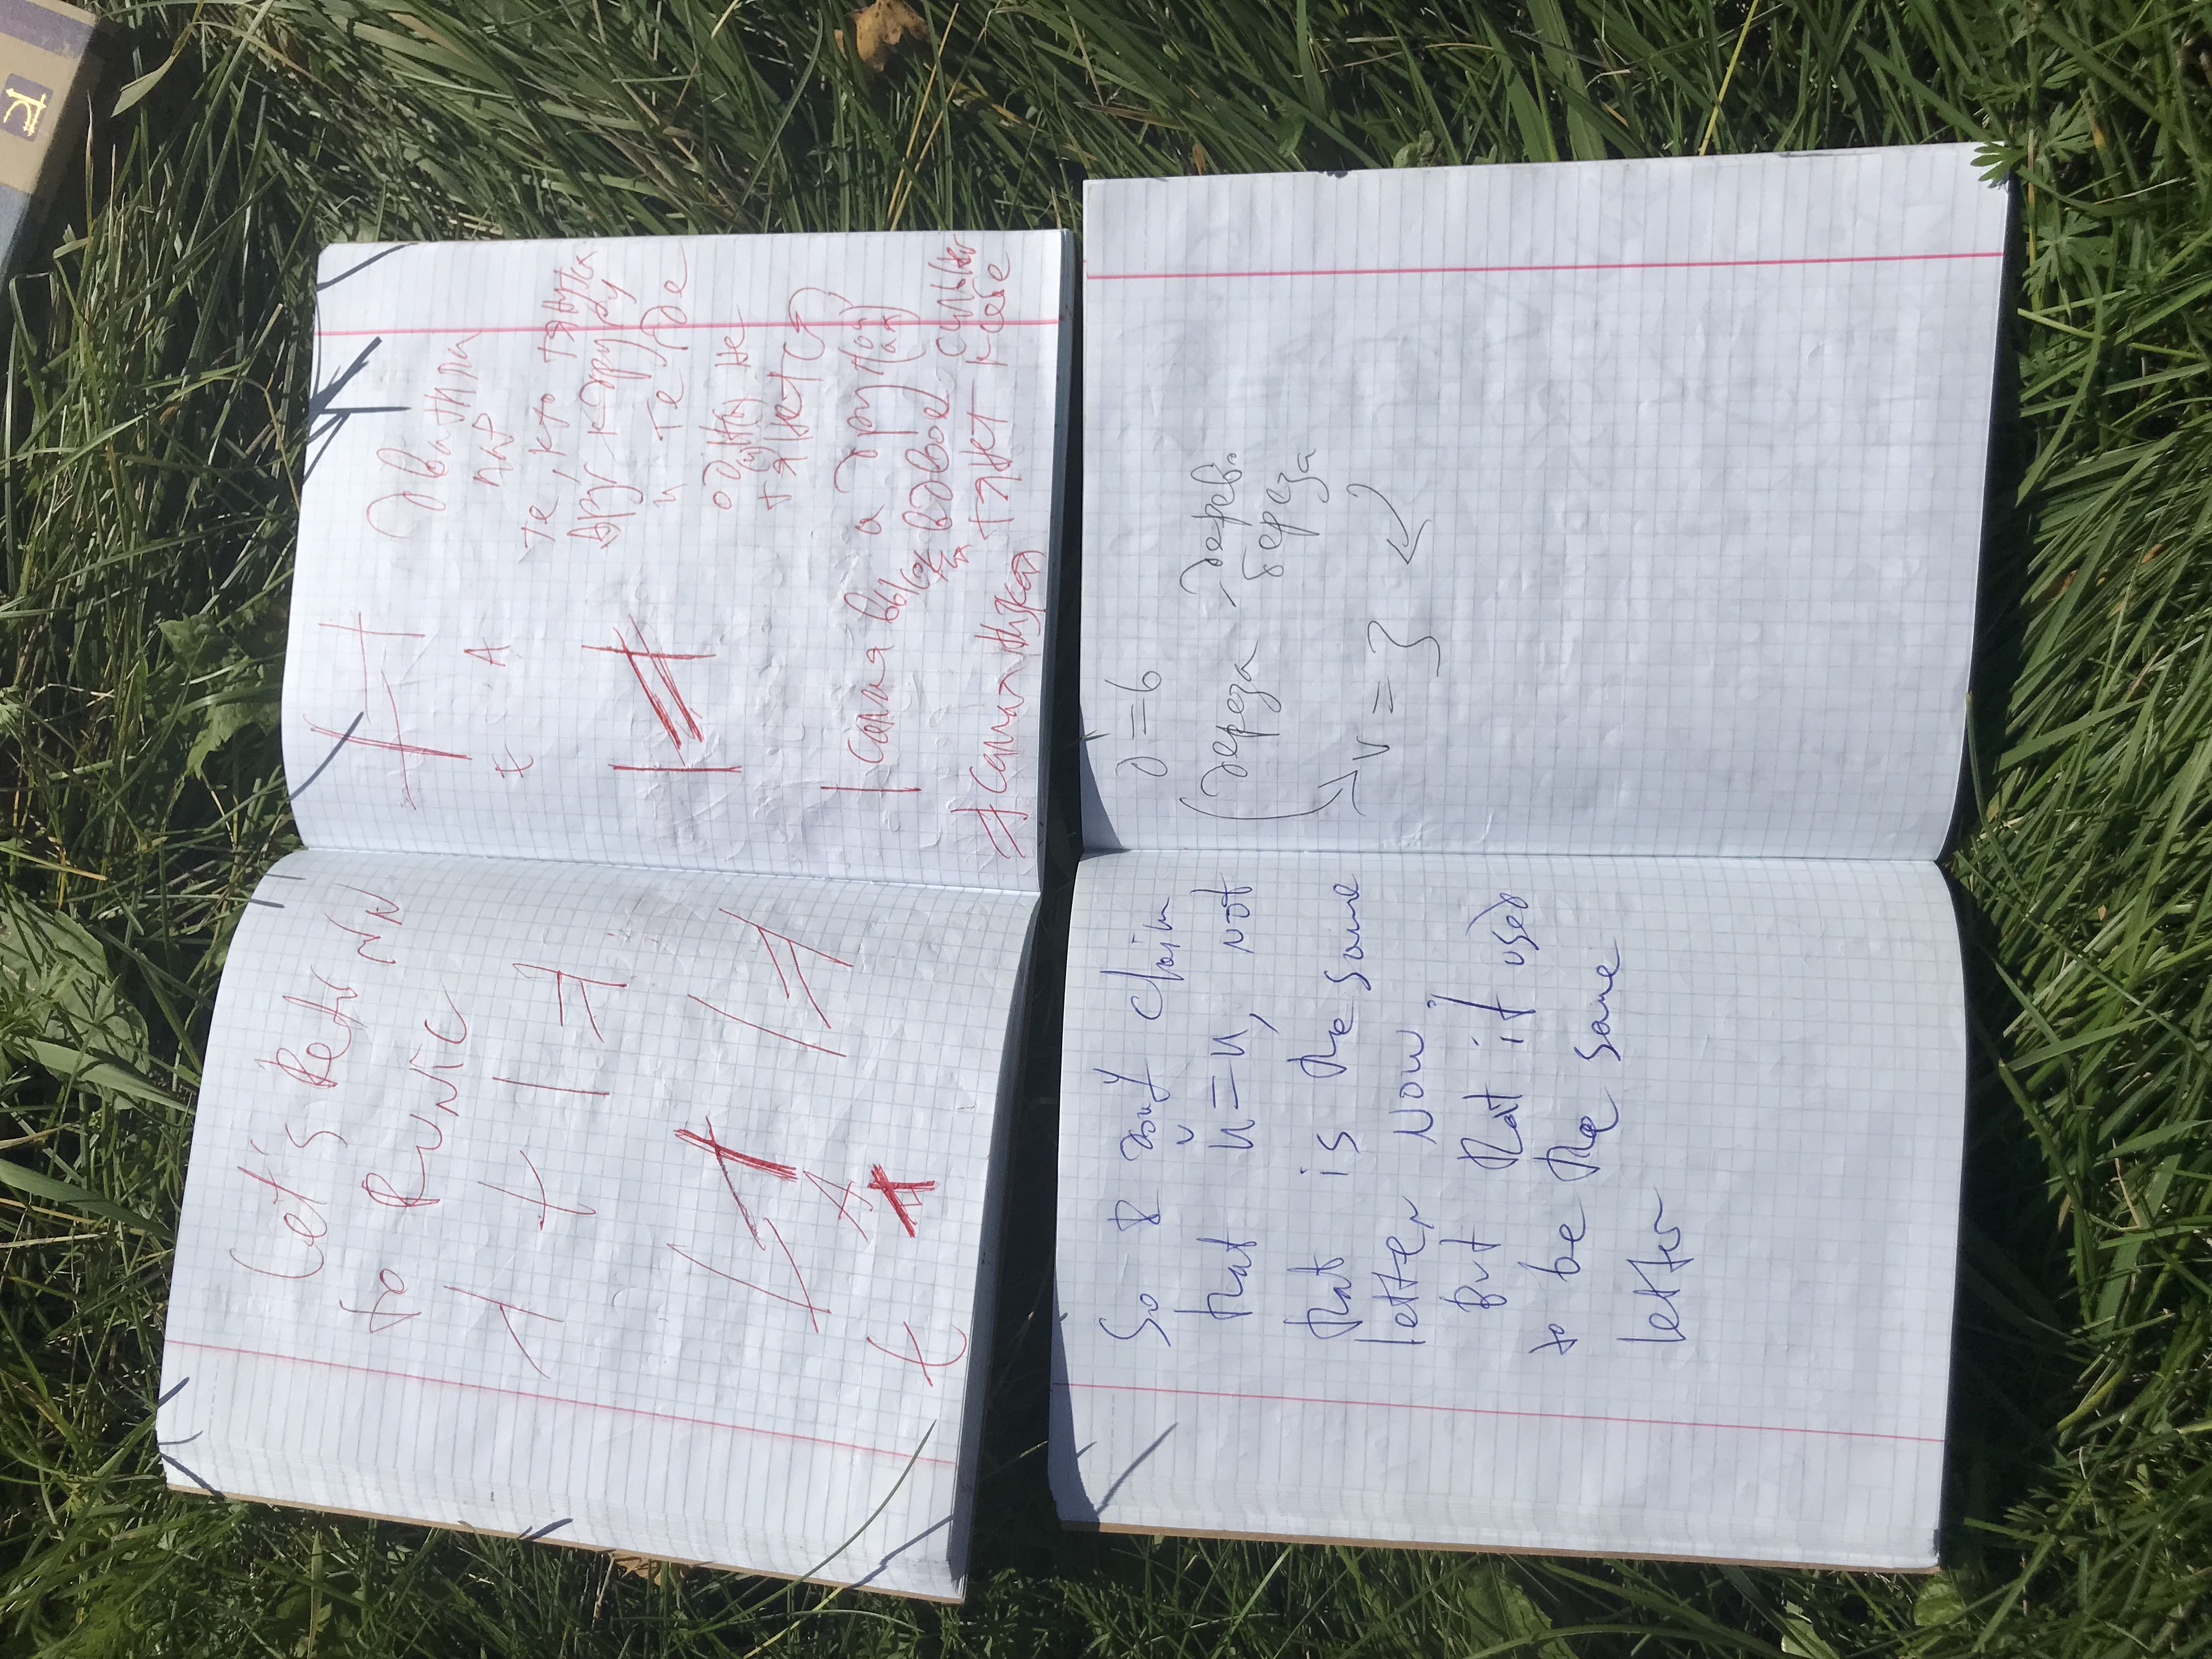 Let's Return
to Runic
A
t
E A
два типа
пар
те, кто тянутся
друг к другу
и те где
од(и)н(а) не
тянется
а друг(ой)(ая)
самая высокая
вдвое сильнее
тянет к себе
самая низкая
So I don't claim
that й=и, not
that is the same
letter now.
But that it used
to be the same
letter
д=б
дереза дерево
береза
v = З